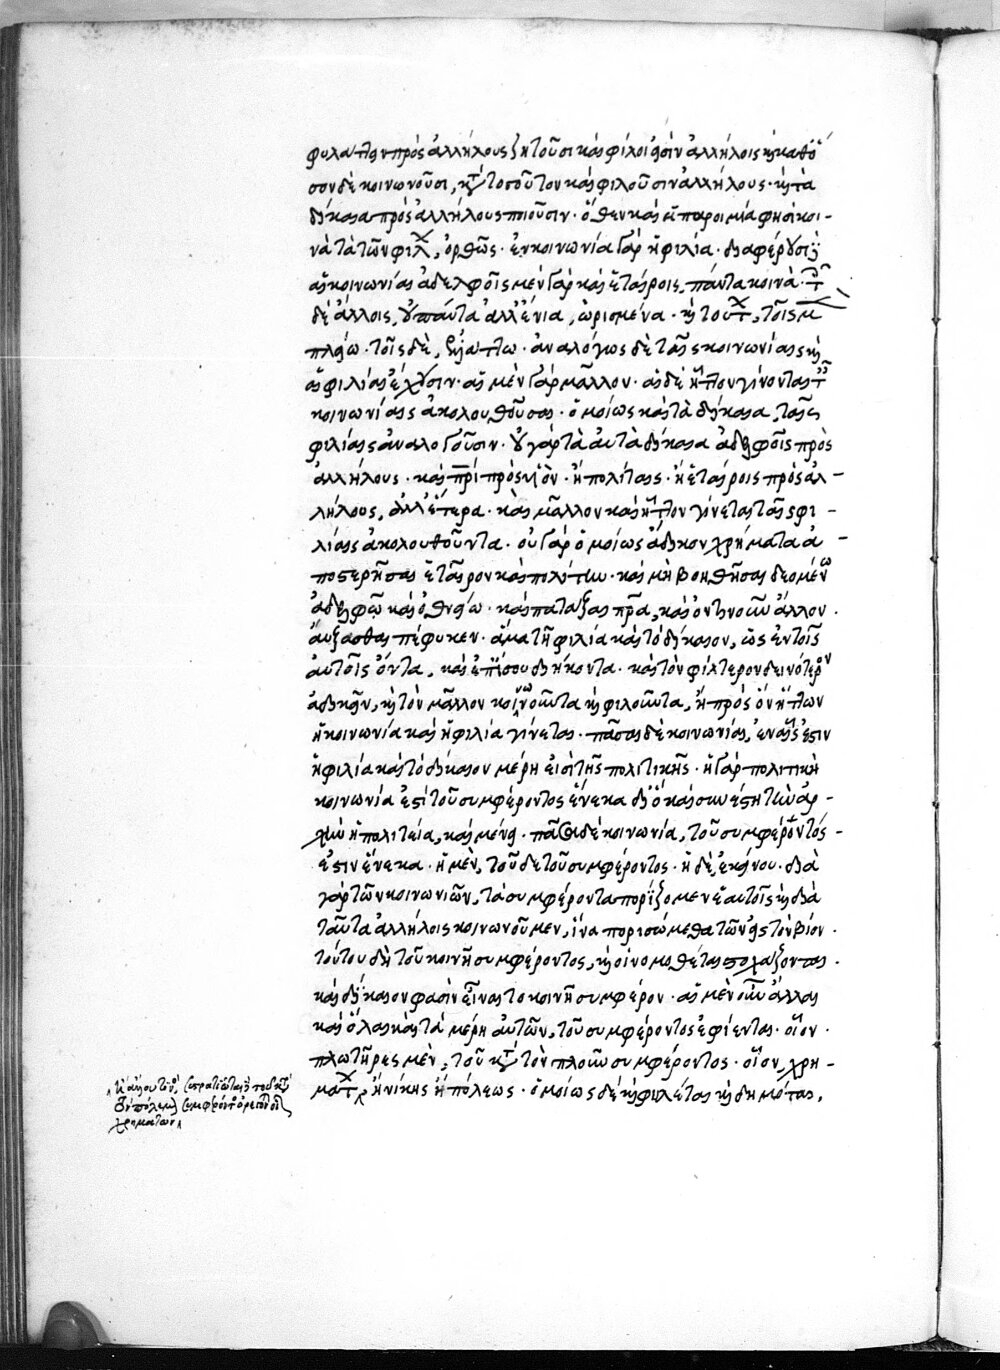 φυλάττειν πρὸς ἀλλήλους ζητοῦσι καὶ φίλοι εἰσὶν ἀλλήλοις καὶ καθό
σον δὲ κοινωνοῦσι, κατὰ τοσοῦτον καὶ φιλοῦσιν ἀλλήλους· καὶ τὰ
δίκαια πρὸς ἀλλήλους ποιοῦσιν· ὅθεν καὶ ἡ παροιμία φησὶ κοι-
νὰ τὰ τῶν φίλων, ὀρθῶς· ἐν κοινωνία γὰρ ἡ φιλία· διαφέρουσι δὲ
αἱ κοινωνίαι ἀδελφοῖς μὲν γὰρ καὶ ἑταίροις, πάντα κοινὰ· τοῖς
δὲ ἄλλοις, οὐ πάντα ἀλλ' ἔνια, ὡρισμένα· καὶ τούτων, τοῖς μὲν
πλείω· τοῖς δὲ, ἐλάττω· ἀναλόγως δὲ ταῖς κοινωνίαις καὶ
αἱ φιλίαι ἔχουσιν· αἱ μὲν γὰρ μᾶλλον· αἱ δὲ ἧττον γίνονται ταῖς
κοινωνίαις ἀκολουθοῦσαι· ὁμοίως καὶ τὰ δίκαια, ταῖς
φιλίαις ἀναλογοῦσιν· οὐ γὰρ τὰ αὐτὰ δίκαια ἀδελφοῖς πρὸς
ἀλλήλους· καὶ πατρὶ πρὸς υἱὸν· ἢ πολίταις· ἢ ἑταίροις πρὸς ἀλ-
λήλους, ἀλλ' ἕτερα· καὶ μᾶλλον καὶ ἧττον γίνεται ταῖς φι-
λίαις ἀκολουθοῦντα· οὐ γὰρ ὁμοίως ἄδικον χρήματα ἀ-
ποστερῆσαι ἑταῖρον καὶ πολίτην· καὶ μὴ βοηθῆσαι δεομένω
ἀδελφῷ καὶ ὀθνείω· καὶ πατάξαι πατέρα, καὶ ὁντινοῦν ἄλλον·
αὔξεσθαι πέφυκεν· ἅμα τῆ φιλία καὶ τὸ δίκαιον, ὡς ἐν τοῖς
αὐτοῖς ὄντα, καὶ ἐπίσου διήκοντα· καὶ τὸν φίλτερον δεινότερον
ἀδικεῖν, καὶ τὸν μᾶλλον κοινωνοῦντα καὶ φιλοῦντα, ἢ πρὸς ὃν ἧττον
ἡ κοινωνία καὶ ἡ φιλία γίνεται· πᾶσαι δὲ κοινωνίαι, ἐν αἷς ἐστιν
ἡ φιλία καὶ τὸ δίκαιον μέρη εἰσὶ τῆς πολιτικῆς· ἡ γὰρ πολιτικὴ
κοινωνία ἐστὶ τοῦ συμφέροντος ἕνεκα δι' ὃ καὶ συνέστη τὴν ἀρ-
χὴν ἡ πολιτεία, καὶ μένει· πᾶσα δὲ κοινωνία, τοῦ συμφέροντός
ἐστιν ἕνεκα· ἡ μὲν, τοῦδε τοῦ συμφέροντος· ἡ δὲ, ἐκείνου· διὰ
γὰρ τῶν κοινωνιῶν, τὰ συμφέροντα πορίζομεν ἑαυτοῖς καὶ διὰ
ταῦτα ἀλλήλοις κοινωνοῦμεν, ἵνα πορισώμεθα τῶν εἰς τὸν βίον·
τούτου δὴ τοῦ κοινῆ συμφέροντος, καὶ οἱ νομοθέται στοχάζονται·
καὶ δίκαιον φασὶν εἶναι τὸ κοινῆ συμφέρον· αἱ μὲν οὖν ἄλλαι
καὶ ὅλαι κατὰ μέρη αὐτῶν, τοῦ συμφέροντος ἐφίενται· οἷον·
πλωτῆρες μὲν, τοῦ κατὰ τὸν πλοῦν συμφέροντος· οἷον, χρη
μάτων, ἢ νίκης ἢ πόλεως· ὁμοίως δὲ καὶ φιλέται καὶ δημόται,
χρημάτων